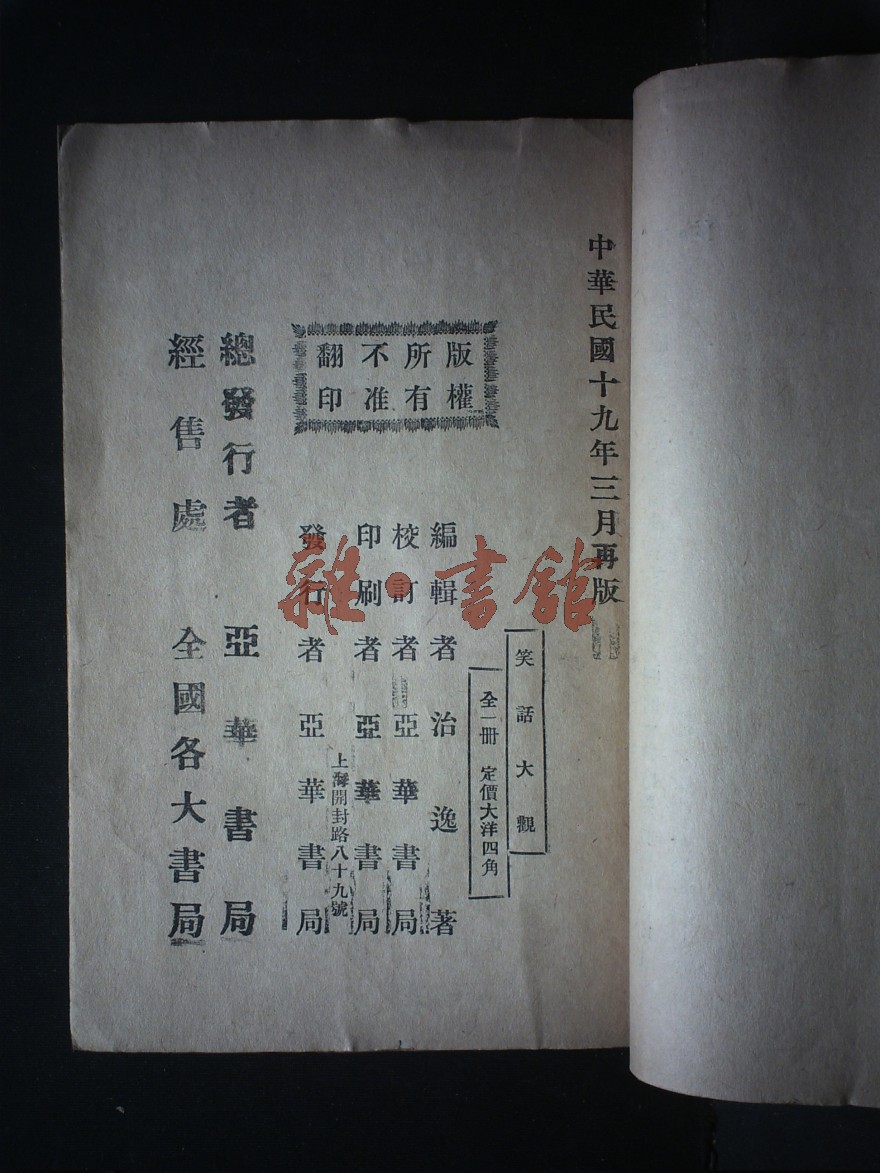 中華民國十九年三月再版
笑話大觀
全一冊 定價大洋四角
版權
所有
不准
翻印
編輯者 治逸著
校訂者 亞華書局
印刷者 亞華書局
上海開封路八十九號
發行者 亞華書局
總發行者 亞華書局
經售處 全國各大書局
雜·書館